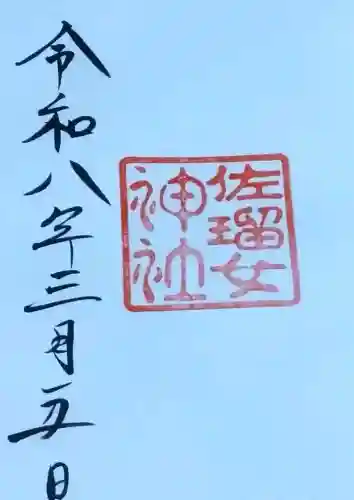 佐瑠女
神社
令和八年三月五日